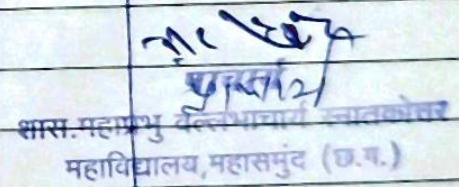 प्राचार्य
शास. महाप्रभु वल्लभाचार्य स्नातकोत्तर
महाविद्यालय, महासमुंद (छ.ग.)